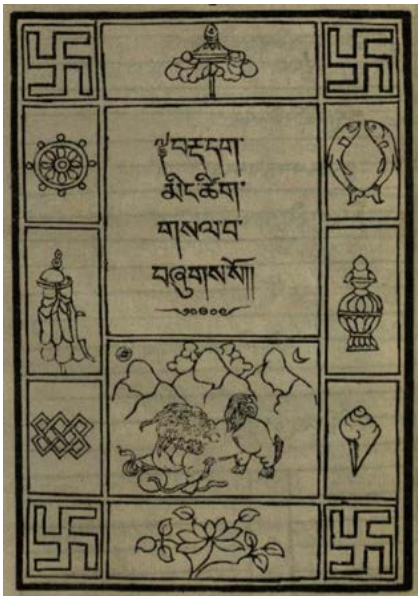 ༄༅།བརྡ་དག་
མིང་ཚིག་
གསལ་བ་
བཞུགས་སོ།།